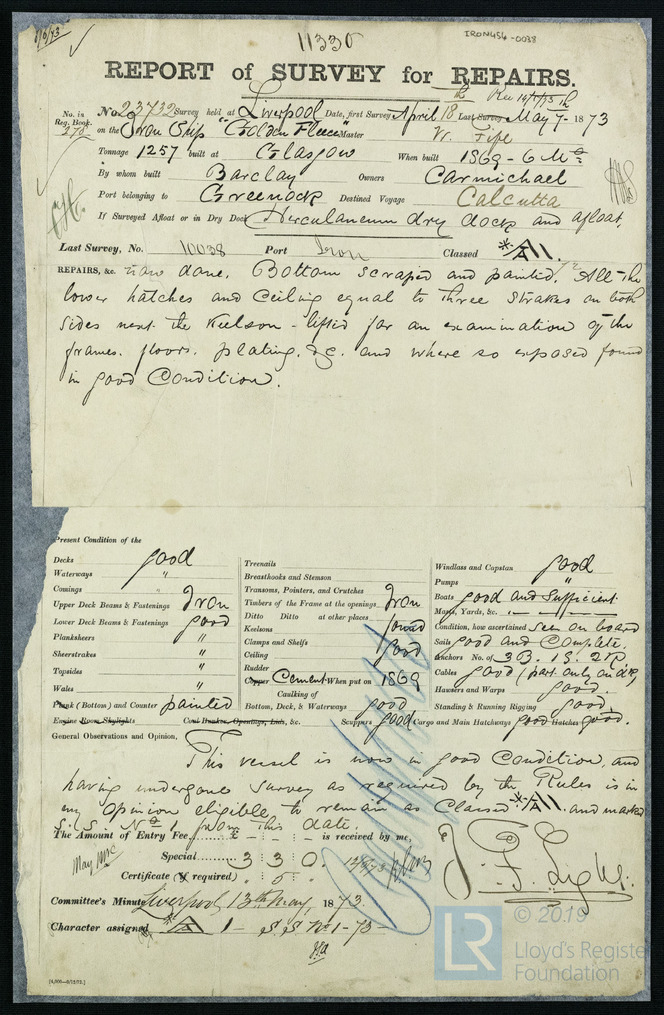 8/6/73
11330
IRON454-0038
REPORT of SURVEY for REPAIRS.
Rec 14/5/73
No. in Reg. Book. 278
No 23732 Survey held at Liverpool Date, first Survey April 18th Last Survey May 7th 1873
on the Iron Ship "Golden Fleece" Master W. Fife
Tonnage 1257 built at Glasgow When built 1869 - 6 Mo
By whom built Barclay Owners Carmichael
Port belonging to Greenock Destined Voyage Calcutta
If Surveyed Afloat or in Dry Dock Herculaneum dry dock and afloat.
Last Survey, No. 10038 Port Iron Classed A 1.
REPAIRS, &c. now done. Bottom scraped and painted. All the
lower hatches and Ceiling equal to three Strakes on both
sides next the Keelson - lifted for an examination of the
frames. floors. plating. &c. and where so exposed found
in good Condition.
Present Condition of the
Decks good
Waterways "
Comings "
Upper Deck Beams & Fastenings Iron
Lower Deck Beams & Fastenings good
Planksheers "
Sheerstrakes "
Topsides "
Wales "
Plank (Bottom) and Counter painted
Engine Room Skylights Coal Bunker, Openings, Lids, &c.
Treenails
Breasthooks and Stemson
Transoms, Pointers, and Crutches
Timbers of the Frame at the openings Iron
Ditto Ditto at other places
Keelsons found
Clamps and Shelfs good
Ceiling
Rudder
Copper Cement When put on 1869
Caulking of
Bottom, Deck, & Waterways good
Scuppers good Cargo and Main Hatchways good Hatches good.
Windlass and Capstan good
Pumps "
Boats good and Sufficient
Masts, Yards, &c.
Condition, how ascertained seen on board
Sails good and Complete.
Anchors No. of 3B. 1S. 2K
Cables good (part only on dk)
Hawsers and Warps good.
Standing & Running Rigging good.
General Observations and Opinion,
This vessel is now in good Condition, and
having undergone survey as required by the Rules is in
my opinion eligible to remain as Classed A 1. and marked
S.S. No 1 from this date.
The Amount of Entry Fee £ - : - : - is received by me,
Special 3 3 0
Certificate (if required) . 5 .
Committee's Minute Liverpool 13th May, 1873.
Character assigned A 1 - S S No 1 - 73 -
© 2019
LR
Lloyd's Register
Foundation